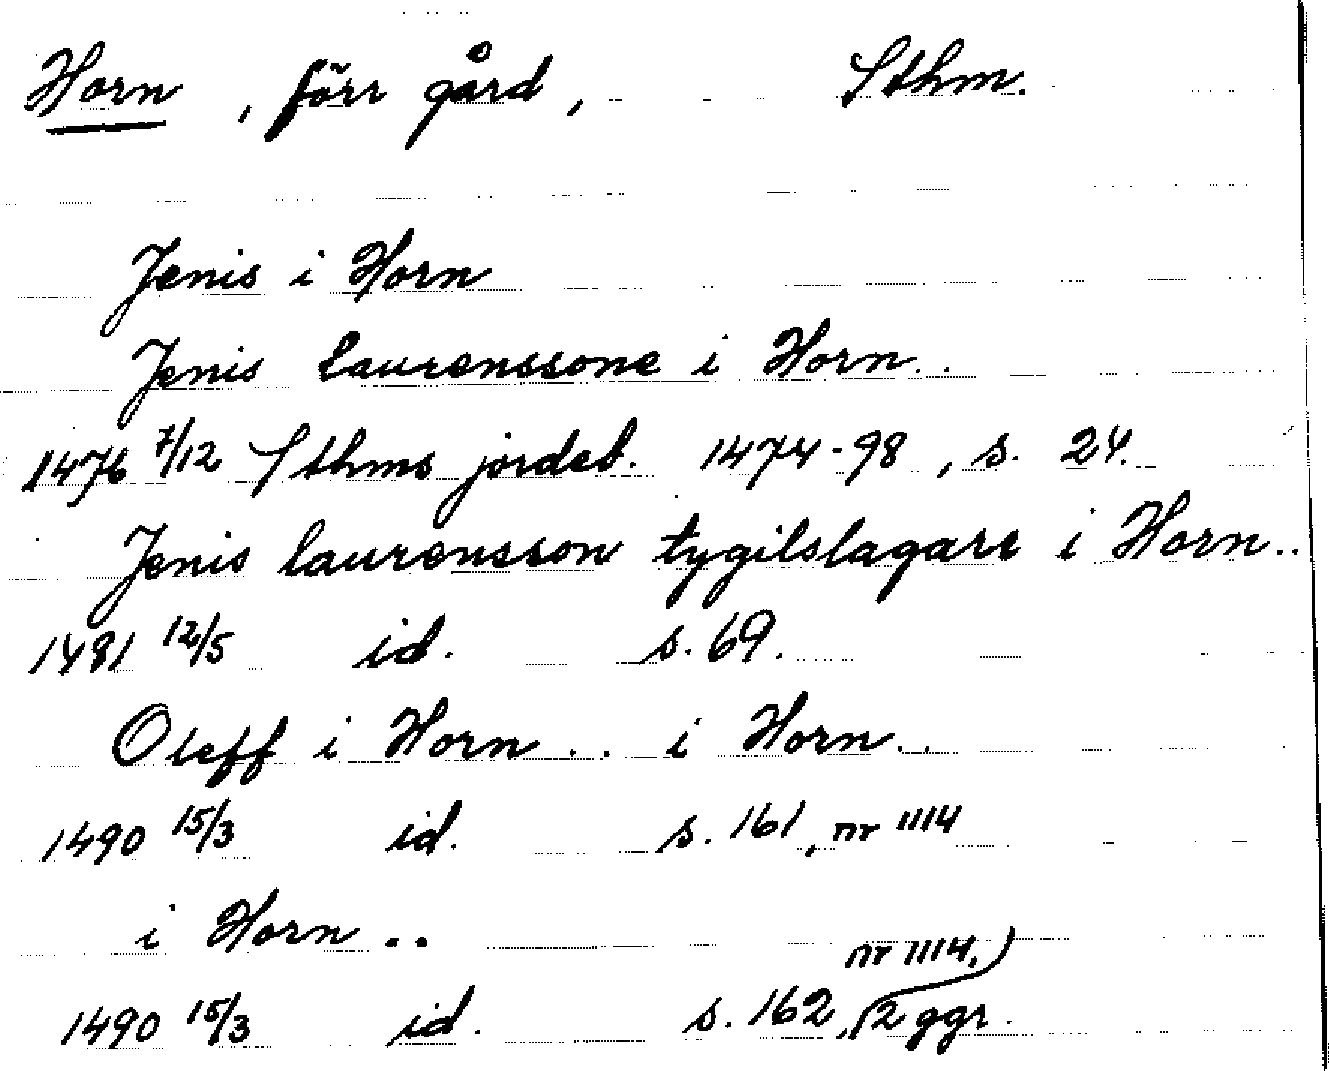 Horn, förr gård, Sthm.
Jenis i Horn
Jenis Laurenssone i Horn..
1476 7/12 Sthms jordeb. 1474-98, s. 24.
Jenis laurensson tygilslagare i Horn..
1481 12/5 id. s. 69.
Oleff i Horn.. i Horn..
1490 15/3 id. s. 161, nr 1114
i Horn..
nr 1114,
1490 15/3 id. s. 162, 2 ggr.